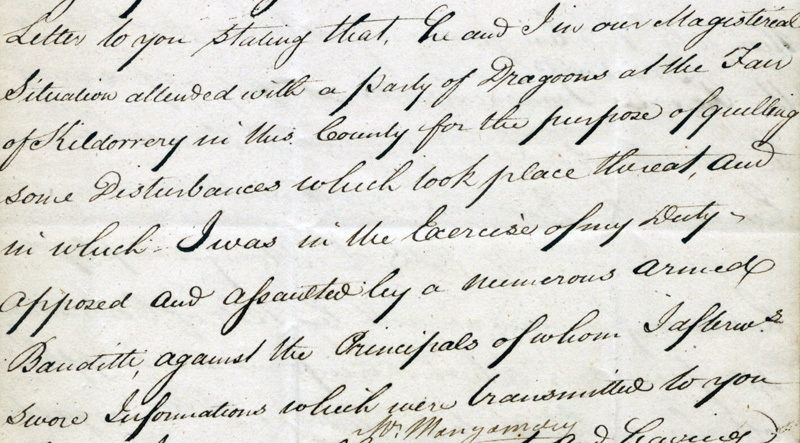 Letter to you stating that, he and I in our Magisterial
Situation attended with a party of Dragoons at the Fair
of Kildorrery in this County for the purpose of quelling
some Disturbances which took place thereat, and
in which I was in the Exercise of my Duty
opposed and assaulted by a numerous armed
Banditti, against the Principals of whom I afterws
swore Informations which were transmitted to you
Mr.
and